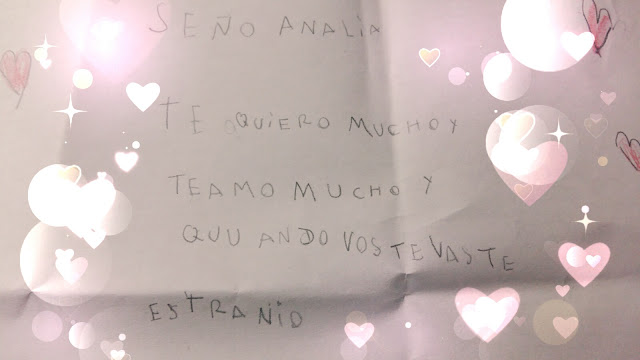 SEÑO ANALIA
TE QUIERO MUCHO Y
TEAMO MUCHO Y
QUUANDO VOS TEVASTE
ESTRAÑIO